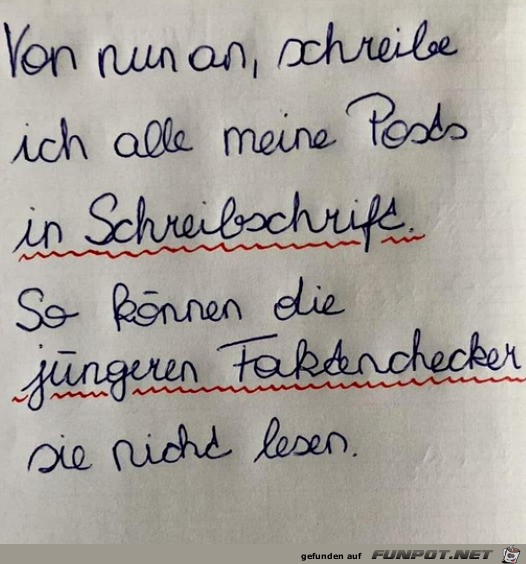 Von nun an, schreibe
ich alle meine Posts
in Schreibschrift.
So können die
jüngeren Faktenchecker
sie nicht lesen.
gefunden auf FUNPOT.NET